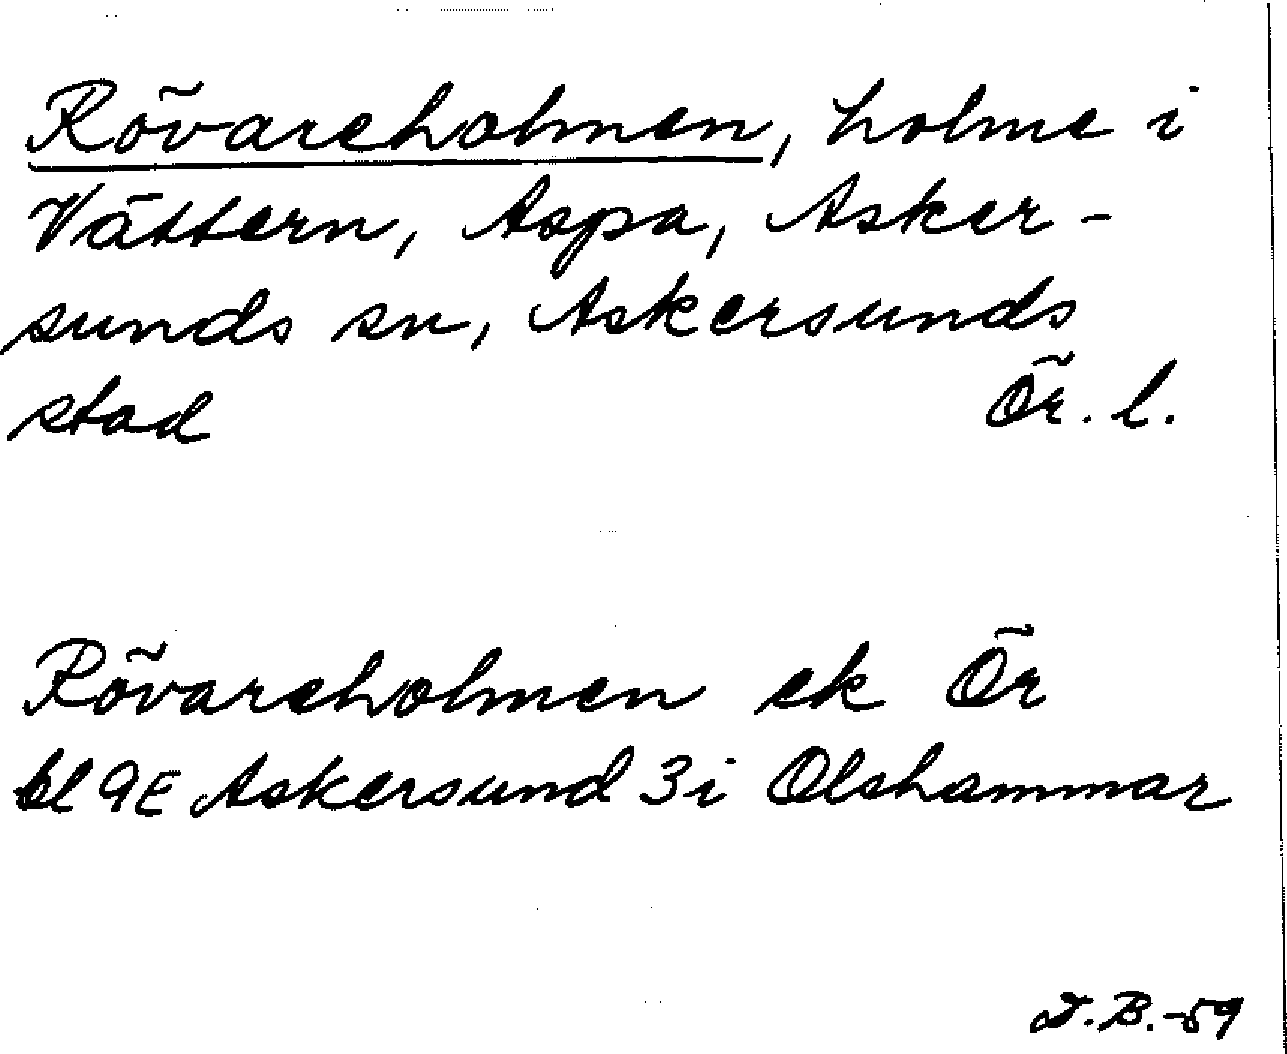 Rövareholmen, holme i
Vättern, Aspa, Asker-
sunds sn, Askersunds
stad Ör. l.
Rövareholmen ek Ör
bl 9E Askersund 3i Olshammar
D.B.-59